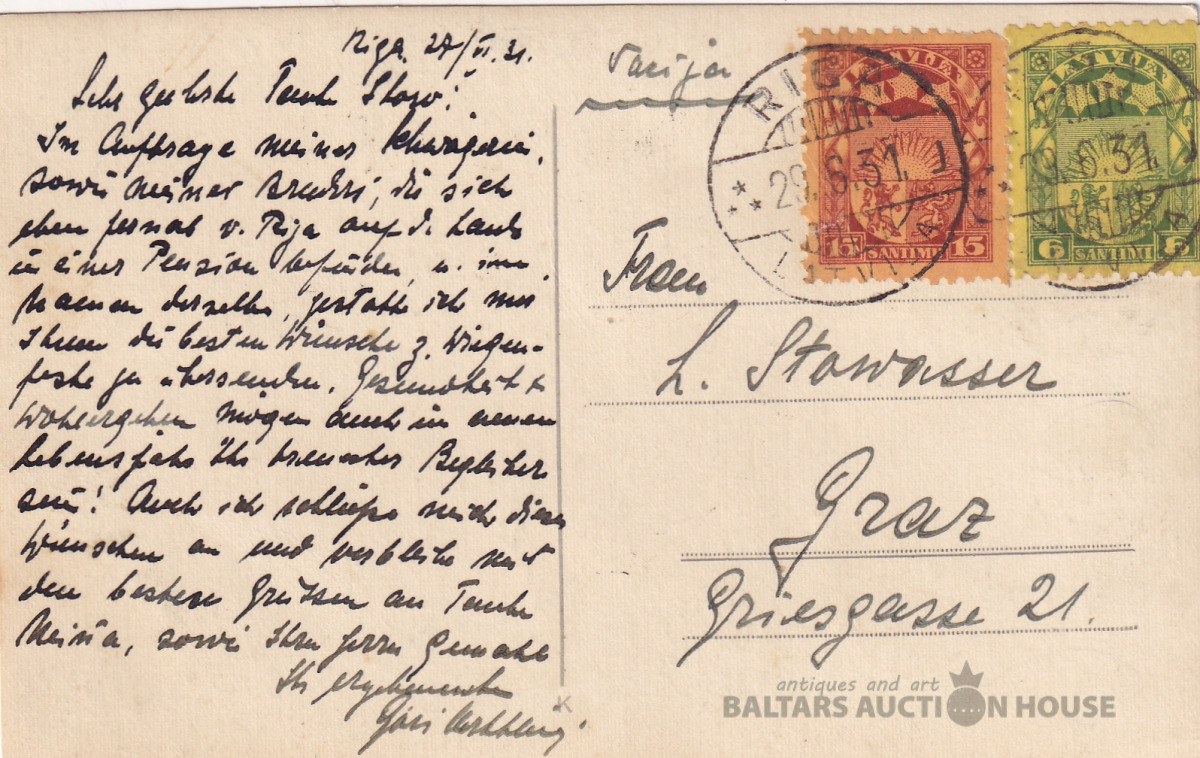 Riga, 27/VI.31.
Sehr geehrte Tante Stow!
Im Auftrage meiner Schwägerin,
sowie meines Bruders, die sich
eben fernab v. Riga auf d. Lande
in einer Pension befinden, u. im
Namen derselben, gestatte ich mir
Ihnen die besten Wünsche z. Wiegen-
feste zu übersenden. Gesundheit &
Wohlergehen mögen auch im neuen
Lebensjahr Ihr treuester Begleiter
sein! Auch ich schließe mich diesen
Wünschen an und verbleibe mit
den besten Grüssen an Tante
sowie Ihren Herrn Gemahl
Ihr ergebenster
Frau
L. Stowasser
Graz
Griesgasse 21.
RIGA
29.6.31. 1
LATVIJA
LATVIJA
15 SANTIMI 15
LATVIJA
6 SANTIMI 6
29.6.31.
K
antiques and art
BALTARS AUCTION HOUSE